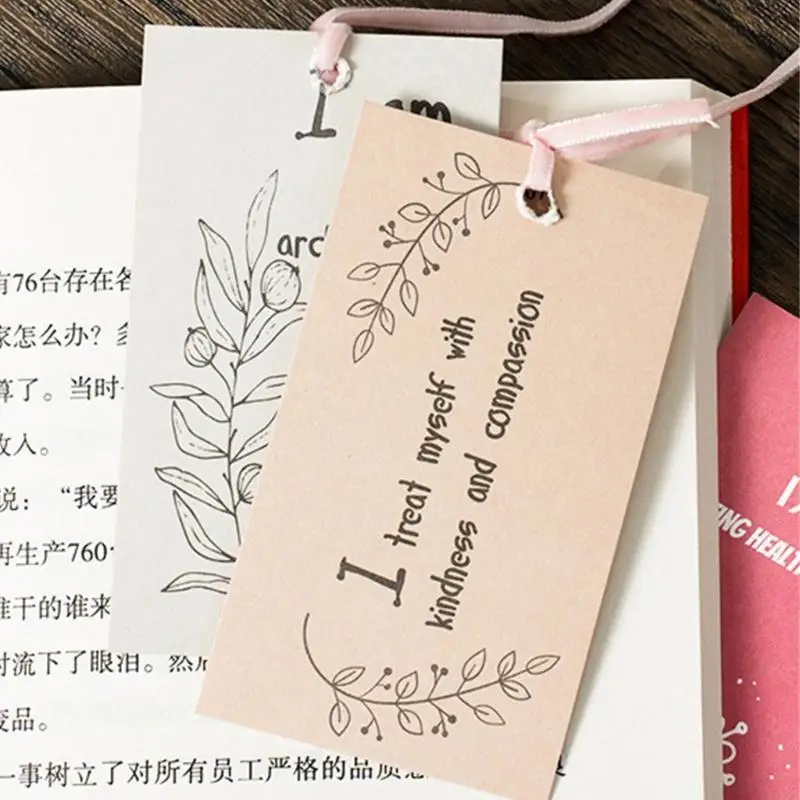 I am
I treat myself with
kindness and compassion
有76台存在各
家怎么办？多
算了。当时
收入。
说：“我要
再生产760
谁来
时流下了眼泪。然后
废品。
一事树立了对所有员工严格的品质
HEALTH